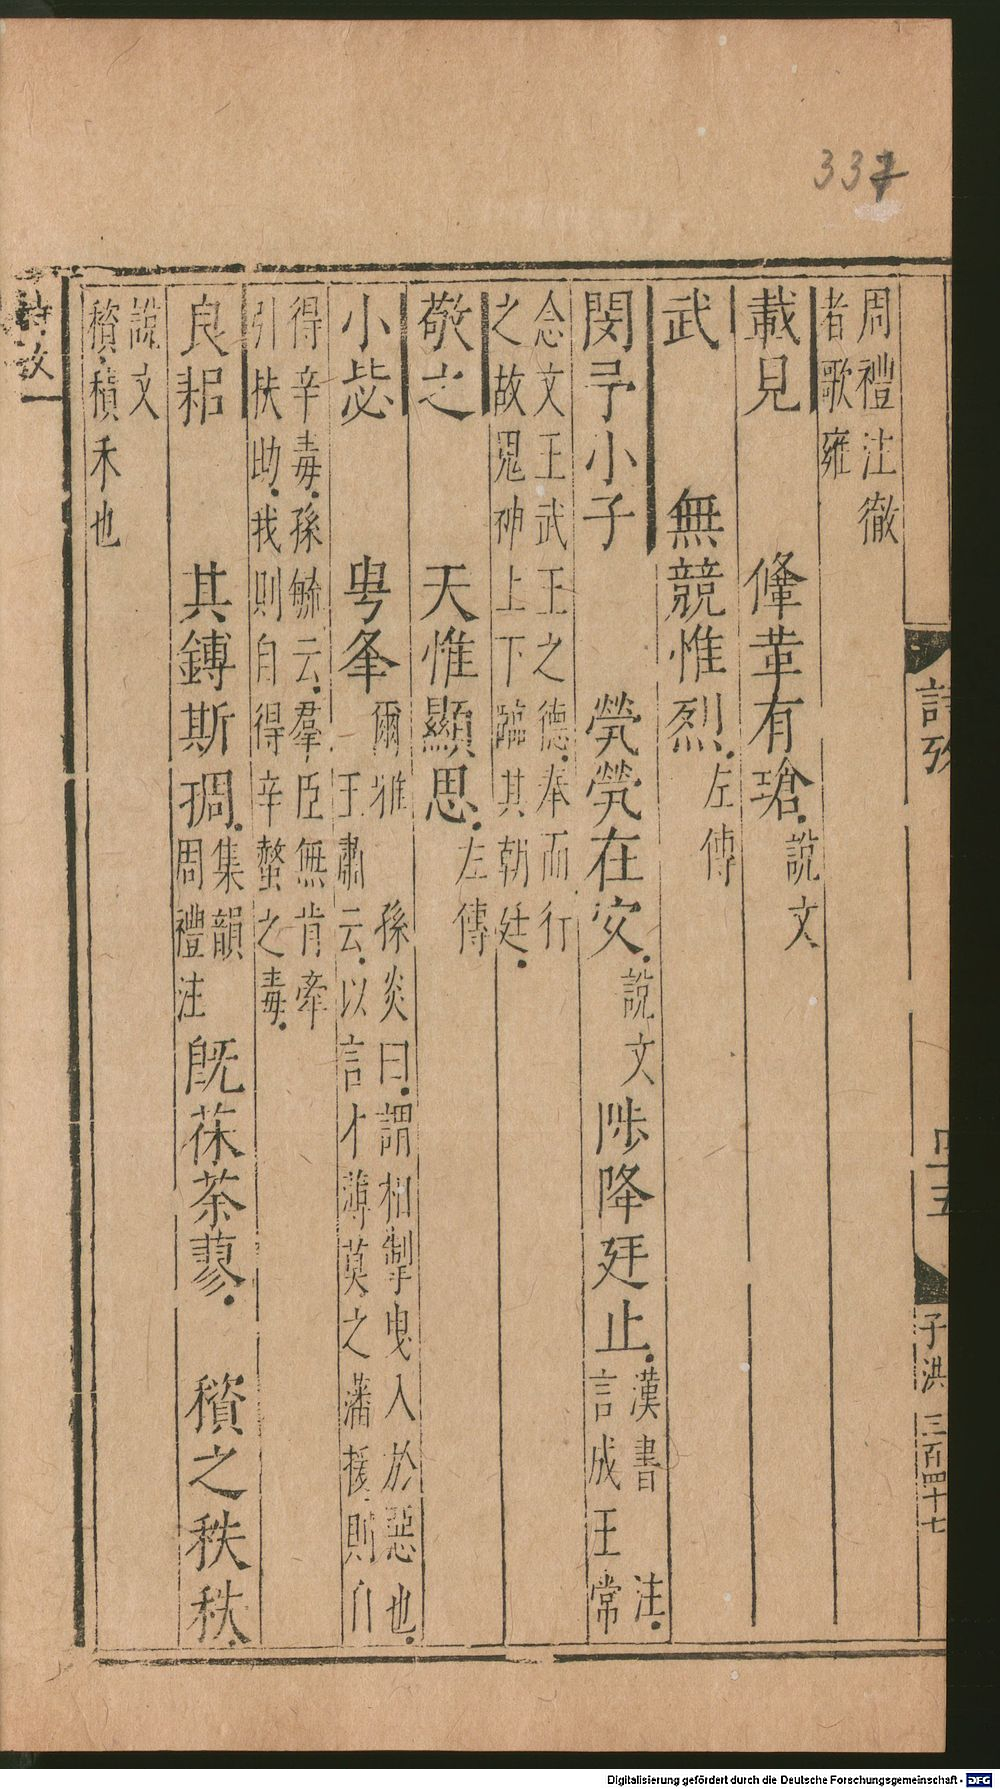 337
周禮注徹
者歌雍
載見　鞗革有瑲說文
武　無競惟烈左傳
閔予小子　煢煢在㝌說文　陟降廷止漢書注言成王常
念文王武王之德奉而行
之故鬼神上下臨其朝廷
敬之　天惟顯思左傳
小毖　甹夆爾雅　孫炎曰謂相掣曳入於惡也
王肅云以言才薄莫之藩援則自
得辛毒孫毓云羣臣無肯牽
引扶助我則自得辛螫之毒
良耜　其鎛斯㧕集韻周禮注　旣茠荼蓼　䅣之秩秩
說文
䅣積禾也
詩攷
四五
子洪　三百四十七
Digitalisierung gefördert durch die Deutsche Forschungsgemeinschaft - DFG